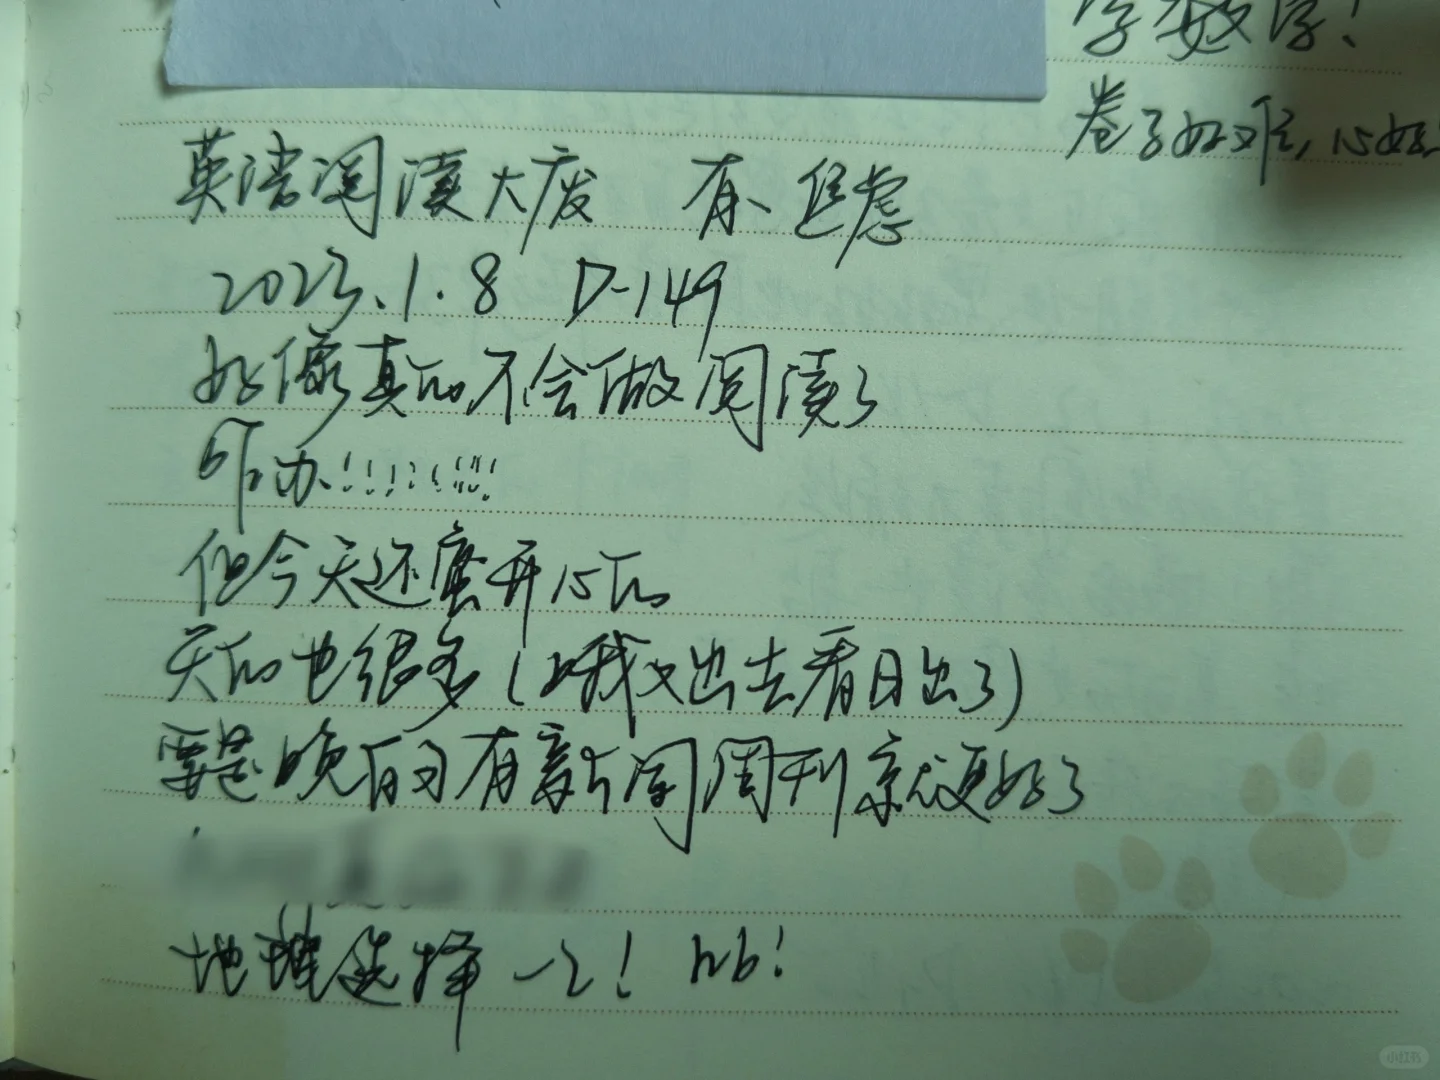 学数学!
卷子好难,心好
英语阅读大废 有、焦虑
2023.1.8 D-149
好像真的不会做阅读了
咋办!!!!!!!!!
但今天还蛮开心的
笑的也很多(哦我又出去看日出了)
要是晚自习有新闻周刊就更好了
地理选择一之! nb!
小红书